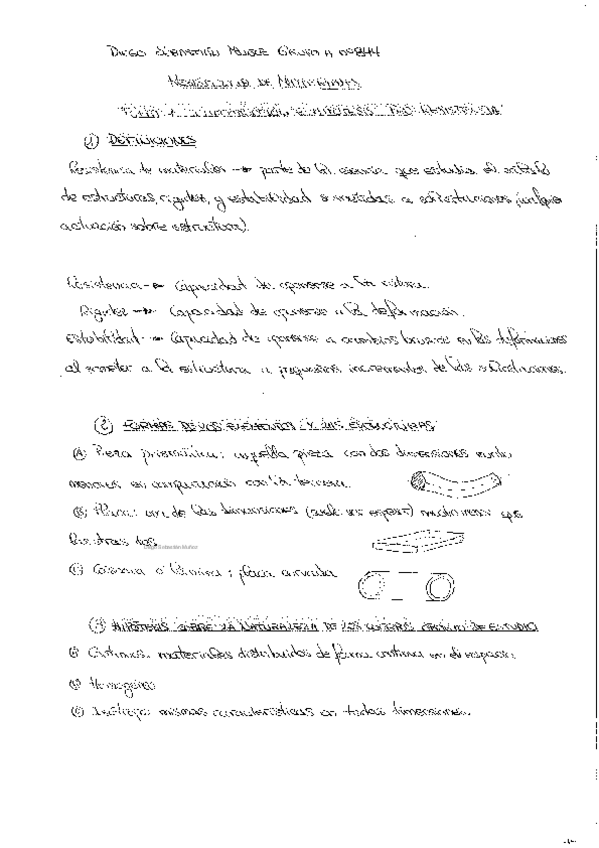 Diego Sebastián Muñoz Grupo A nº844
de Materiales
① DEFINICIONES
Resistencia de materiales → parte de la ciencia que estudia el
de estructuras, rigidez, y estabilidad sometidas a solicitaciones (cualquier
actuación sobre estructura).
Resistencia → Capacidad de oponerse a la rotura.
Rigidez → Capacidad de oponerse a la deformación.
Estabilidad → Capacidad de oponerse a cambios bruscos en las deformaciones
al someter a la estructura a pequeños incrementos de las solicitaciones.
② FORMAS DE LOS ELEMENTOS Y LAS ESTRUCTURAS
Ⓐ Pieza prismática: aquella pieza con dos dimensiones mucho
menores en comparación con la tercera.
Ⓑ Placa: una de las dimensiones (suele ser espesor) mucho menor que
las otras dos.
Diego Sebastián Muñoz
Ⓒ Cáscara o lámina: placa curvada
③ HIPÓTESIS SOBRE LA NATURALEZA DE LOS CUERPOS OBJETO DE ESTUDIO
Ⓐ Continuo: materiales distribuidos de forma continua en el espacio.
Ⓑ Homogéneo
Ⓒ Isótropo: mismas características en todas dimensiones.